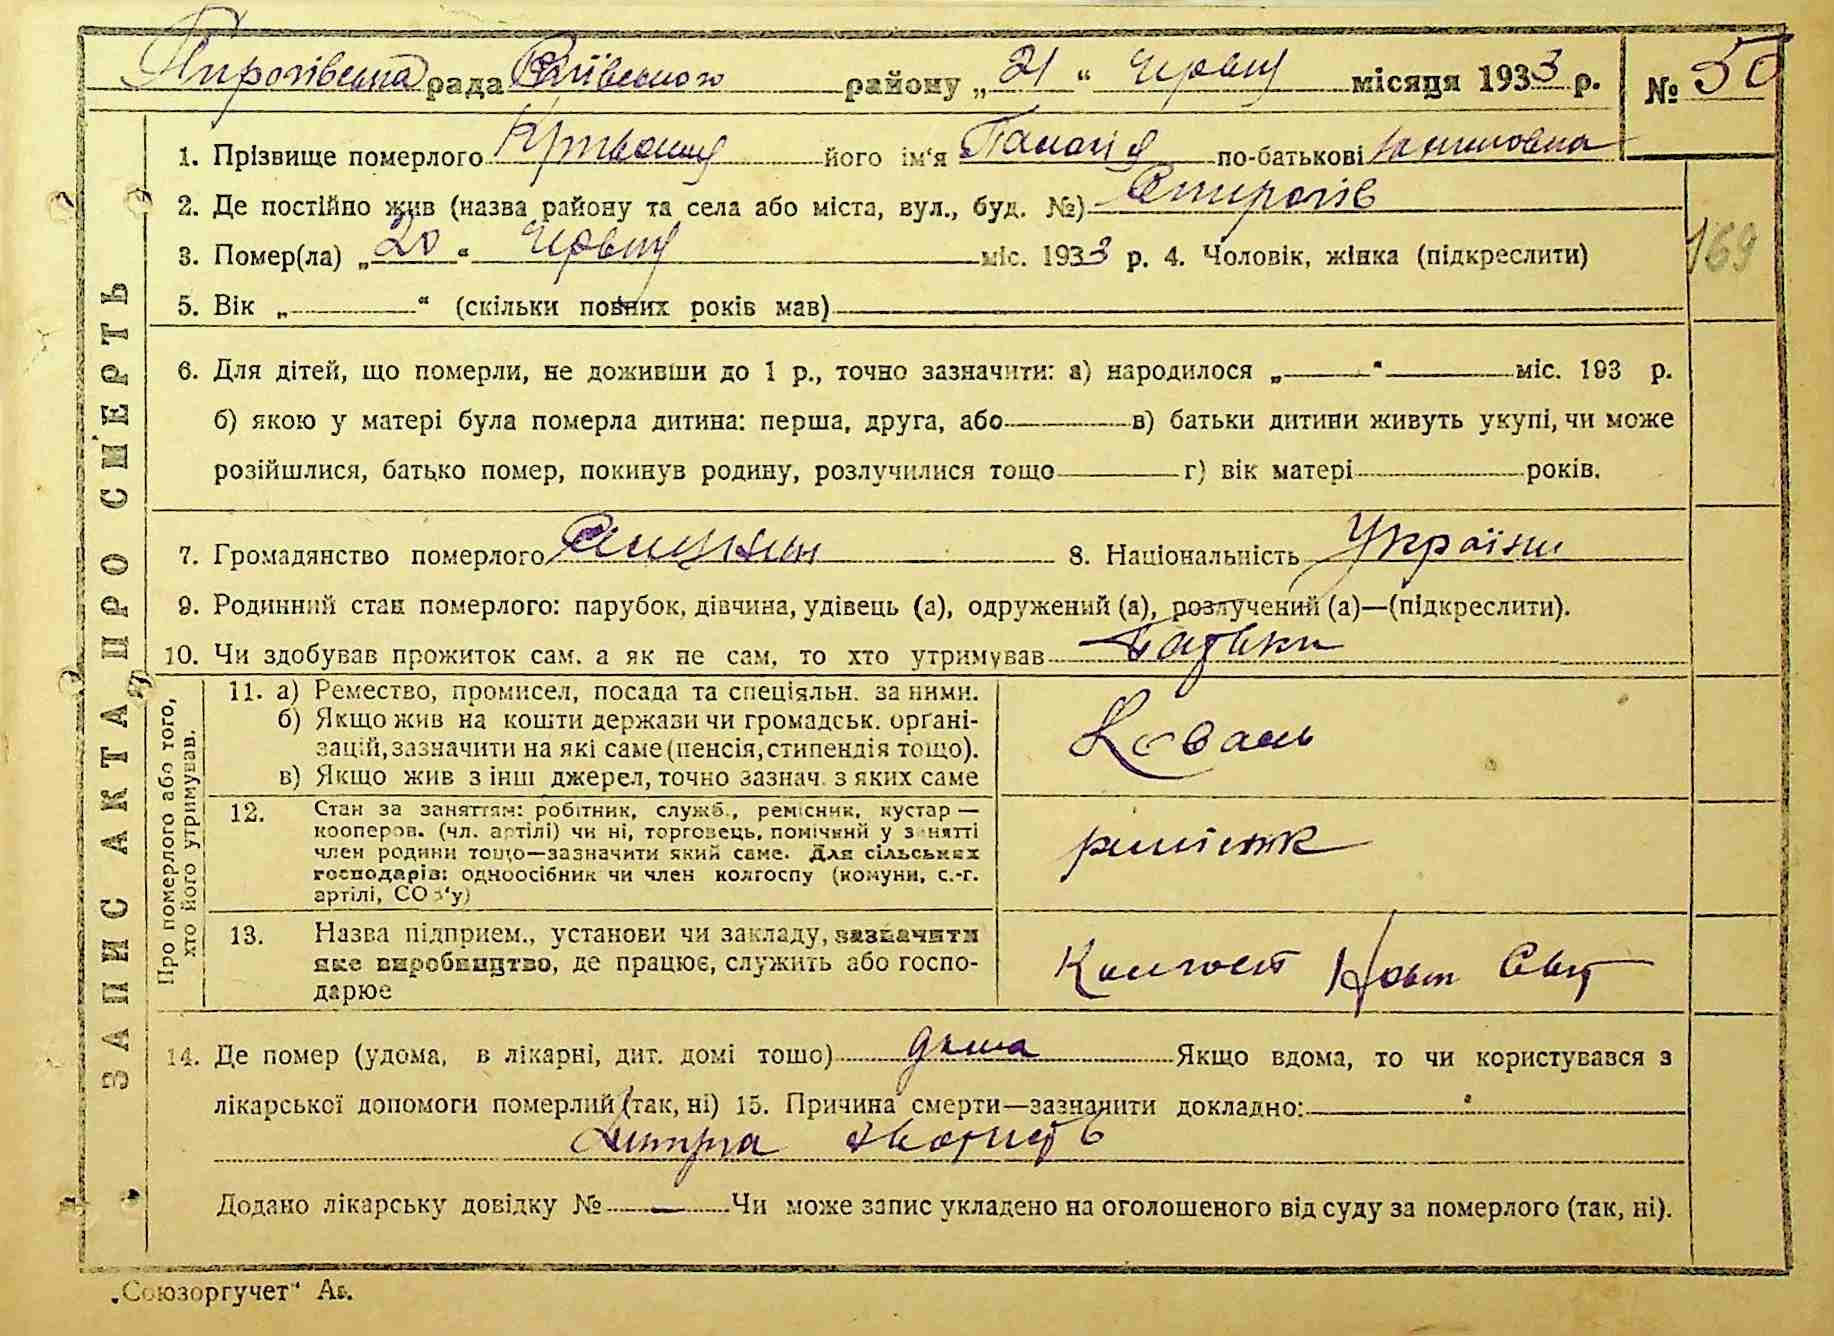 Пирогівська рада Київського району „21“ Червня місяця 1933 р. № 50
1. Прізвище померлого його ім‘я по-батькові
2. Де постійно жив (назва району та села або міста, вул., буд. №) Пирогів
3. Помер(ла) „20“ Червня міс. 1933 р. 4. Чоловік, жінка (підкреслити)
169
5. Вік „ “ (скільки повних років мав)
6. Для дітей, що померли, не доживши до 1 р., точно зазначити: а) народилося „ “ міс. 193 р.
б) якою у матері була померла дитина: перша, друга, або в) батьки дитини живуть укупі, чи може
розійшлися, батько помер, покинув родину, розлучилися тощо г) вік матері років.
7. Громадянство померлого 8. Національність Україн
9. Родинний стан померлого: парубок, дівчина, удівець (а), одружений (а), розлучений (а)—(підкреслити).
10. Чи здобував прожиток сам. а як не сам, то хто утримував Батьки
ЗАПИС АКТА ПРО СМЕРТЬ
Про померлого або того,
хто його утримував.
11. а) Ремество, промисел, посада та спеціяльн. за ними.
б) Якщо жив на кошти держави чи громадськ. орґані-
зацій, зазначити на які саме (пенсія, стипендія тощо).
в) Якщо жив з інш джерел, точно зазнач. з яких саме
Коваль
12. Стан за заняттям: робітник, служб., ремісник, кустар —
кооперов. (чл. артілі) чи ні, торговець, помічний у занятті
член родини тощо—зазначити який саме. Для сільських
господарів: одноосібник чи член колгоспу (комуни, с.-г.
артілі, СОЗ‘у)
ремісник
13. Назва підприєм., установи чи закладу, зазначити
яке виробництво, де працює, служить або госпо-
дарює
Колгосп Новий Світ
14. Де помер (удома, в лікарні, дит. домі тощо) дома Якщо вдома, то чи користувався з
лікарської допомоги померлий (так, ні) 15. Причина смерти—зазначити докладно:
Додано лікарську довідку № Чи може запис укладено на оголошеного від суду за померлого (так, ні).
„Союзоргучет“ Ав.